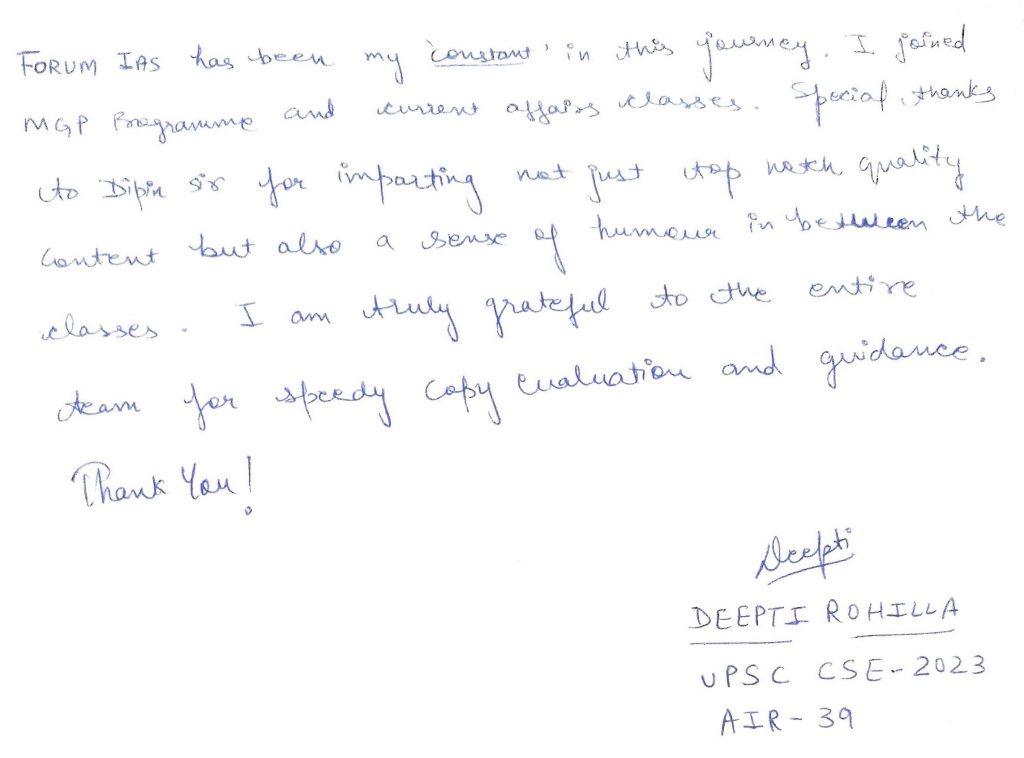 FORUM IAS has been my 'constant' in this journey. I joined
MGP Programme and current affairs classes. Special thanks
to Dipin sir for imparting not just top notch quality
Content but also a sense of humour in between the
classes. I am truly grateful to the entire
team for speedy copy evaluation and guidance.
Thank You!
Deepti
DEEPTI ROHILLA
UPSC CSE-2023
AIR-39